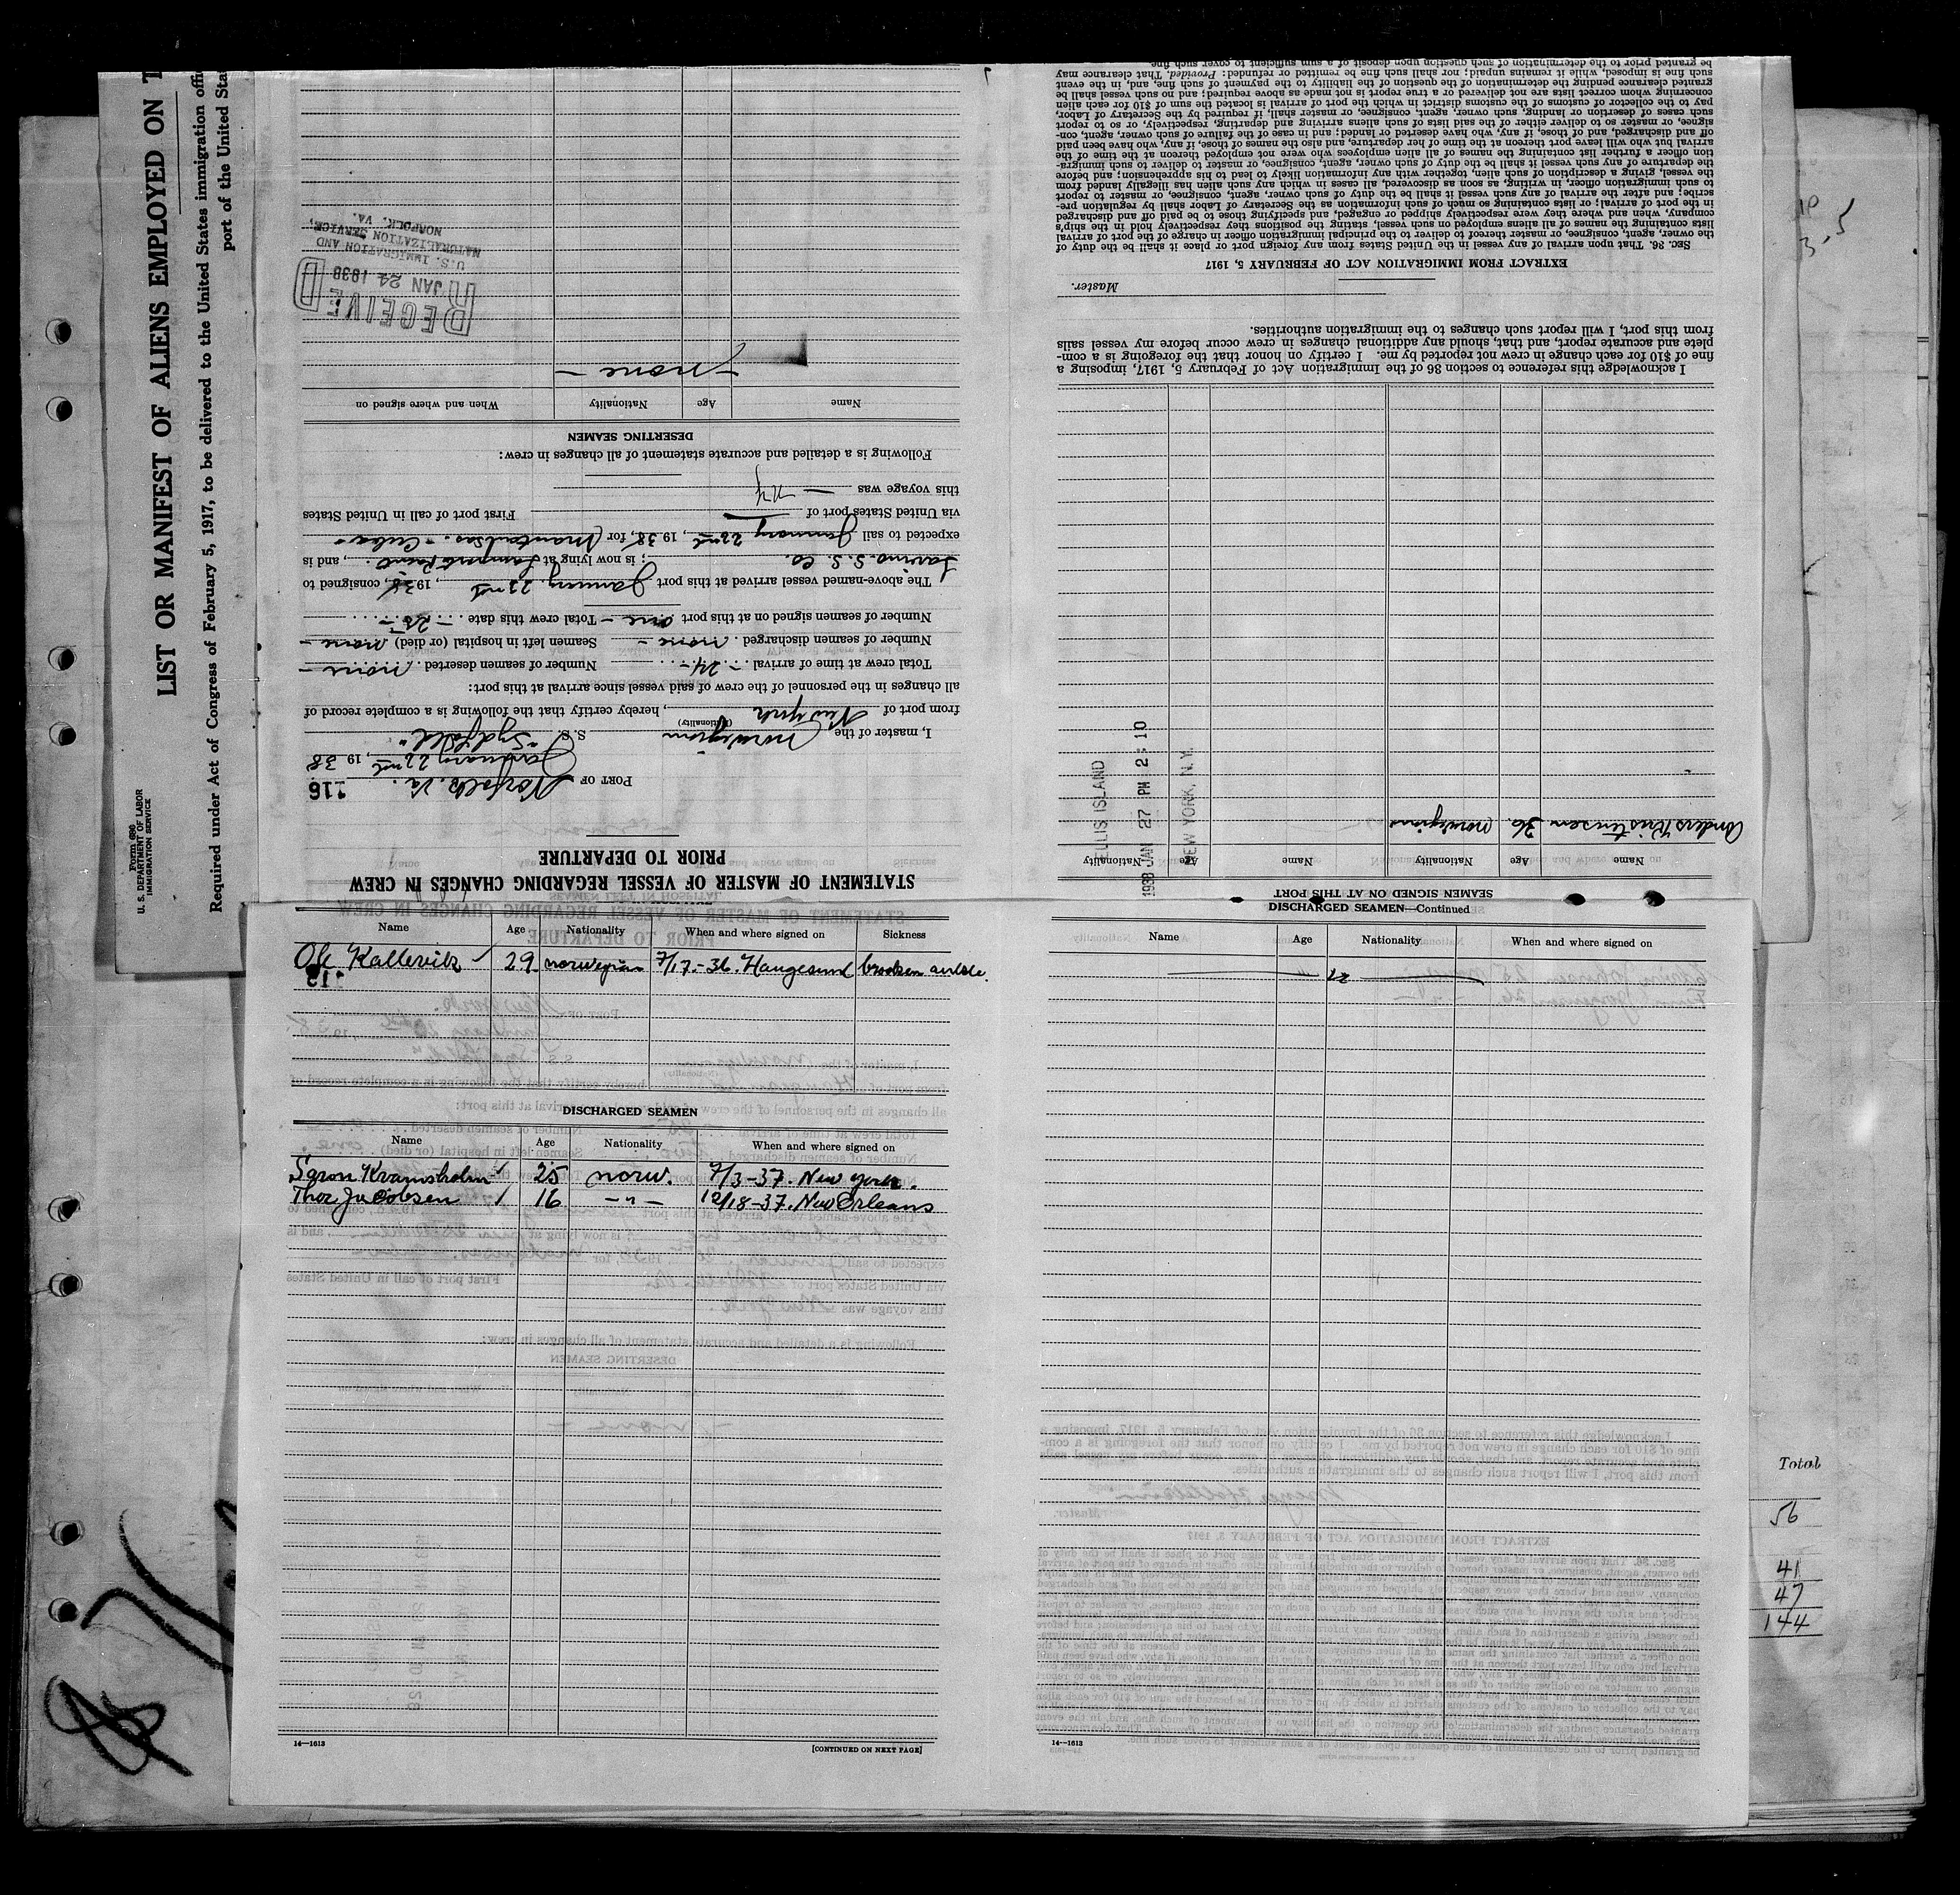 Form 680
U. S. DEPARTMENT OF LABOR
IMMIGRATION SERVICE
LIST OR MANIFEST OF ALIENS EMPLOYED ON T
Required under Act of Congress of February 5, 1917, to be delivered to the United States immigration offi
port of the United Stat
STATEMENT OF MASTER OF VESSEL REGARDING CHANGES IN CREW
PRIOR TO DEPARTURE
116
PORT OF Norfolk, Va.
January 22nd, 1938
I, master of the Norwegian S.S. "Sydfold"
(Nationality)
from port of New York, hereby certify that the following is a complete record of
all changes in the personnel of the crew of said vessel since arrival at this port:
Total crew at time of arrival - 24 - Number of seamen deserted none -
Number of seamen discharged none - Seamen left in hospital (or died) none -
Number of seamen signed on at this port one - Total crew this date - 25 -
The above-named vessel arrived at this port January 22nd, 1938, consigned to
S. S. Co.; is now lying at Lamberts Point, and is
expected to sail January 22nd, 1938, for Mantanzas - Cuba -
via United States port of First port of call in United States
this voyage was - N.Y.
Following is a detailed and accurate statement of all changes in crew:
DESERTING SEAMEN
Name Age Nationality When and where signed on
- none -
RECEIVED
JAN 24 1938
U.S. IMMIGRATION AND
NATURALIZATION SERVICE,
NORFOLK, VA.
SEAMEN SIGNED ON AT THIS PORT
Name Age Nationality Name Age Nationality
Anders Kristensen 36 Norwegian
ELLIS ISLAND
1938 JAN 27 PM 2:10
NEW YORK, N.Y.
I acknowledge this reference to section 36 of the Immigration Act of February 5, 1917, imposing a
fine of $10 for each change in crew not reported by me. I certify on honor that the foregoing is a com-
plete and accurate report, and that, should any additional changes in crew occur before my vessel sails
from this port, I will report such changes to the immigration authorities.
Master.
EXTRACT FROM IMMIGRATION ACT OF FEBRUARY 5, 1917
SEC. 36. That upon arrival of any vessel in the United States from any foreign port or place it shall be the duty of
the owner, agent, consignee, or master thereof to deliver to the principal immigration officer in charge of the port of arrival
lists containing the names of all aliens employed on such vessel, stating the positions they respectively hold in the ship's
company, when and where they were respectively shipped or engaged, and specifying those to be paid off and discharged
in the port of arrival; or lists containing so much of such information as the Secretary of Labor shall by regulation pre-
scribe; and after the arrival of any such vessel it shall be the duty of such owner, agent, consignee, or master to report
to such immigration officer, in writing, as soon as discovered, all cases in which any such alien has illegally landed from
the vessel, giving a description of such alien, together with any information likely to lead to his apprehension; and before
the departure of any such vessel it shall be the duty of such owner, agent, consignee, or master to deliver to such immigra-
tion officer a further list containing the names of all alien employees who were not employed thereon at the time of the
arrival but who will leave port thereon at the time of her departure, and also the names of those, if any, who have been paid
off and discharged, and of those, if any, who have deserted or landed; and in case of the failure of such owner, agent, con-
signee, or master so to deliver either of the said lists of such aliens arriving and departing, respectively, or so to report
such cases of desertion or landing, such owner, agent, consignee, or master shall, if required by the Secretary of Labor,
pay to the collector of customs of the customs district in which the port of arrival is located the sum of $10 for each alien
concerning whom correct lists are not delivered or a true report is not made as above required; and no such vessel shall be
granted clearance pending the determination of the question of the liability to the payment of such fine, and, in the event
such fine is imposed, while it remains unpaid; nor shall such fine be remitted or refunded: Provided, That clearance may
be granted prior to the determination of such question upon deposit of a sum sufficient to cover such fine.
Name Age Nationality When and where signed on Sickness
Ole Kallevik 29 norwegian 7/17.-36. Haugesund brooken ankle.
DISCHARGED SEAMEN
Name Age Nationality When and where signed on
Søron Kramsholm 25 norw. 7/3-37. New york.
Thor Jacobsen 16 -"- 12/18-37. New Orleans
14—1613
[CONTINUED ON NEXT PAGE]
DISCHARGED SEAMEN—Continued
Name Age Nationality When and where signed on
14—1613
Total
56
41
47
144